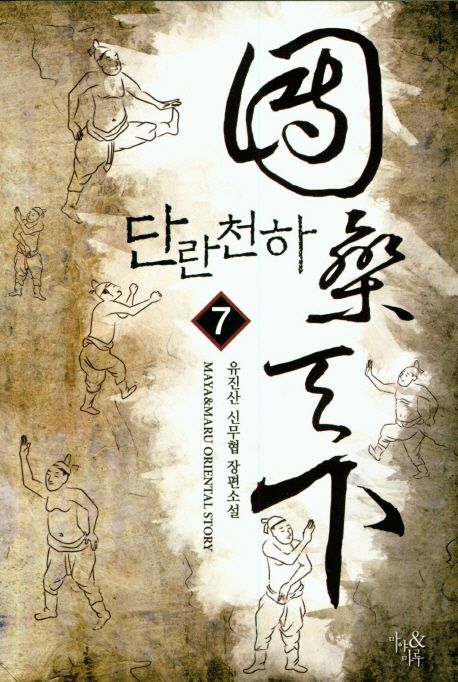 團欒天下
단란천하
7
유진산 신무협 장편소설
MAYA&MARU ORIENTAL STORY
마야&마루